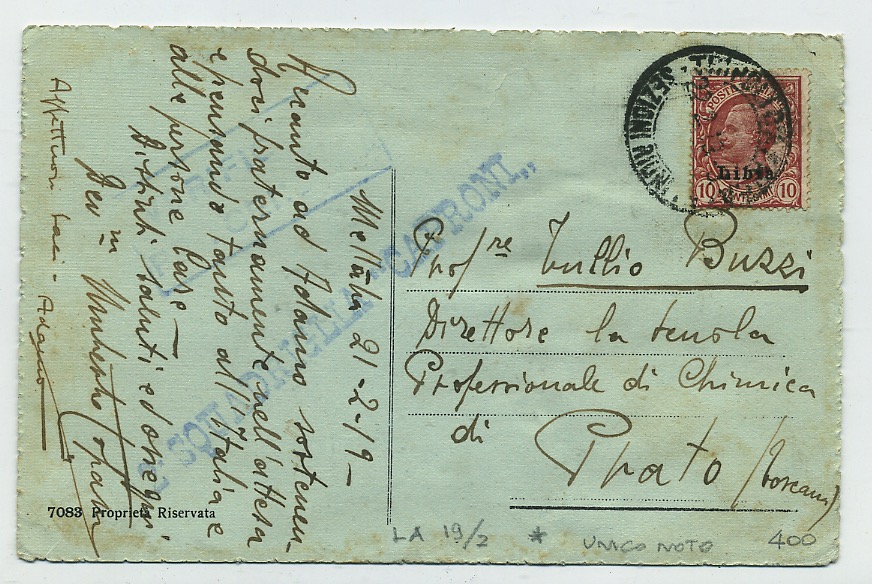 Mellaha 21-2-19-
Accanto ad Adamo sostenen-
doci fraternamente nell'attesa
e pensando tanto all'Italia e
alle persone care -
Distinti saluti ed ossequi
Dev mo Umberto
Affettuosi baci - Adamo
2ª SQUADRIGLIA "CAPRONI"
SEZIONI RIUN
POSTE ITALIANE
Libia
10 CENTESIMI 10
Prof re Tullio Buzzi
Direttore la scuola
Professionale di Chimica
di
Prato (Toscana)
7083 Proprietà Riservata
LA 19/2 * UNICO NOTO 400